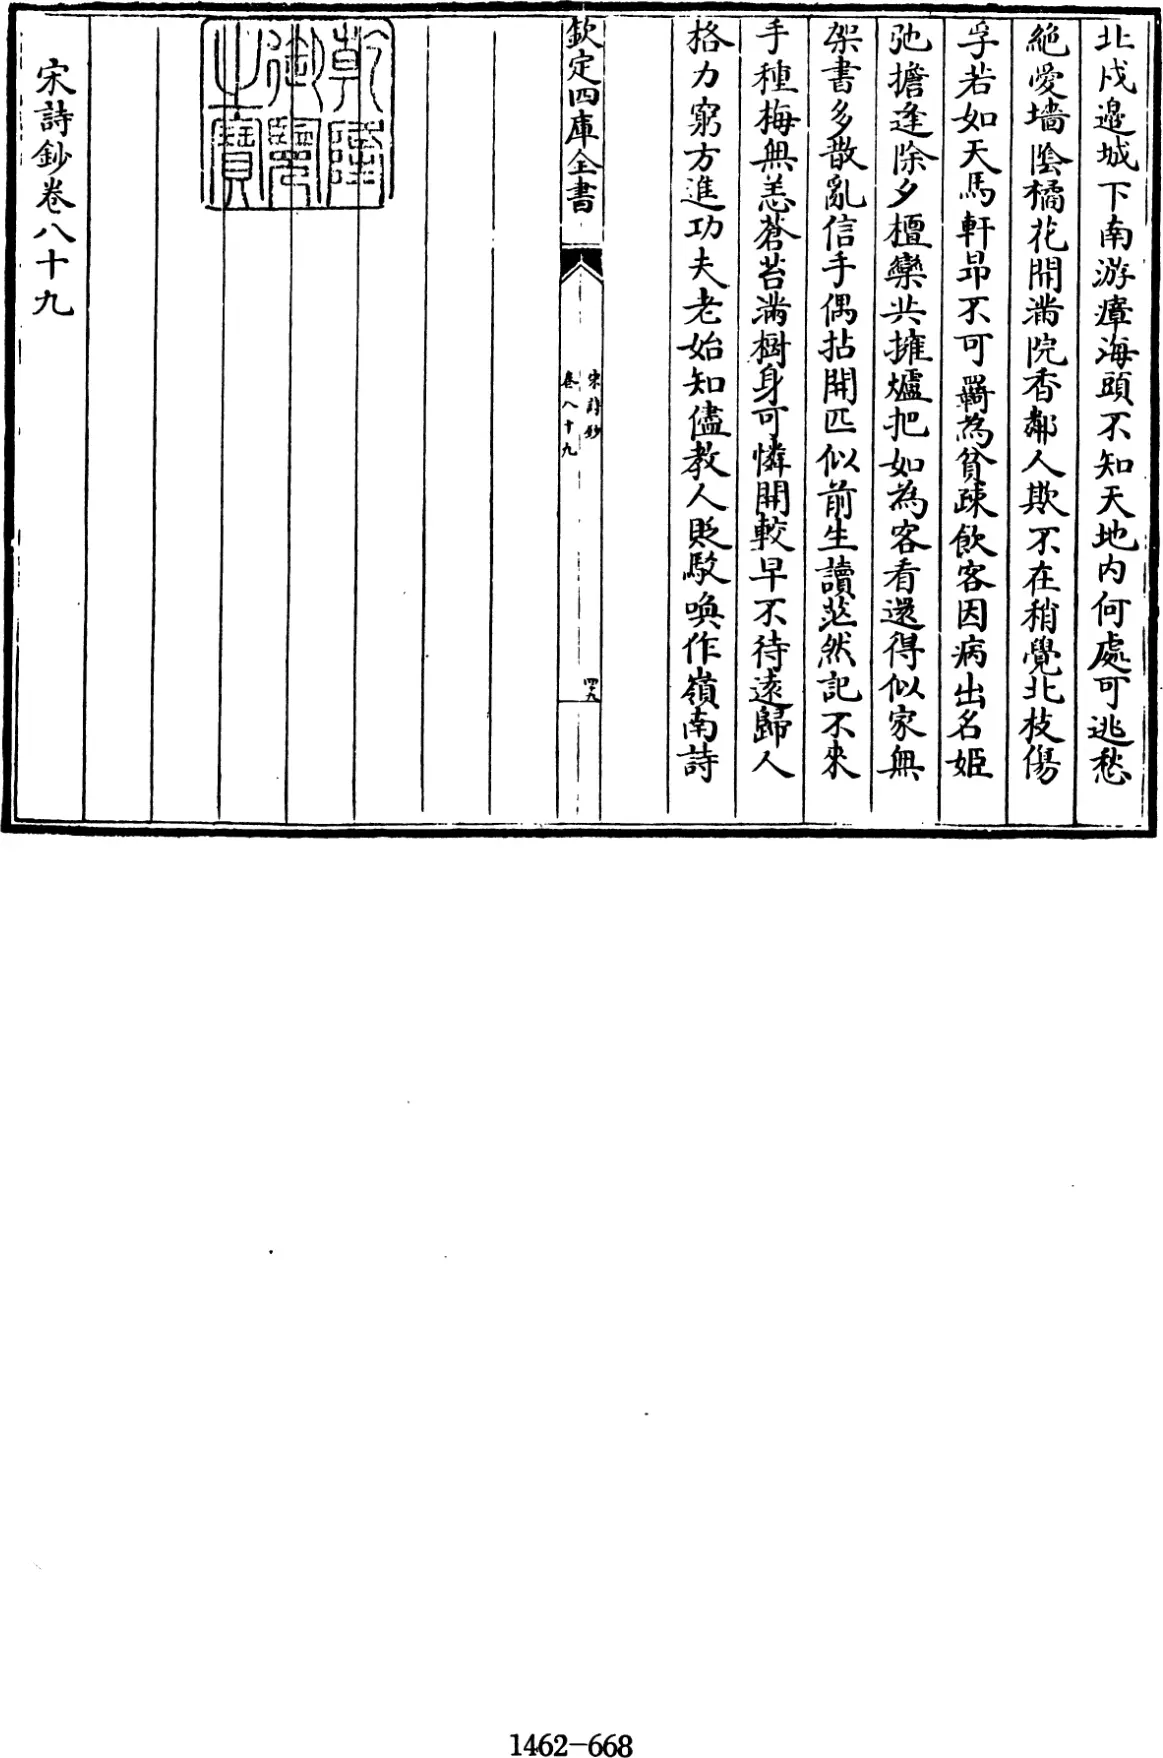 北戍邉城下南游瘴海頭不知天地内何處可逃愁
絶愛墻隂橘花開滿院香鄰人欺不在稍覺北枝傷
孚若如天馬軒昻不可羈為貧疎飲客因病出名姬
弛擔逢除夕檀欒共擁爐把如為客看還得似家無
架書多散亂信手偶拈開匹似前生讀茫然記不來
手種梅無恙蒼苔滿樹身可憐開較早不待逺歸人
格力窮方進功夫老始知儘教人貶駁喚作嶺南詩
欽定四庫全書
宋詩鈔
卷八十九
四十九
乾隆御覽之寶
宋詩鈔卷八十九
1462-668